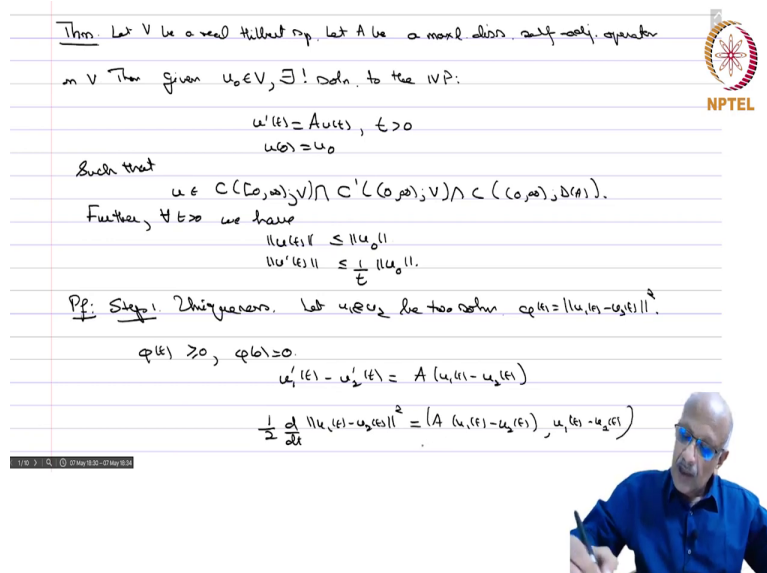 Thm. Let V be a real Hilbert sp. Let A be a maxl. diss. self-adj. operator
on V Then given u₀∈V, ∃! soln. to the IVP:
u'(t) = Au(t), t>0
u(0) = u₀
Such that
u ∈ C([0,∞);V) ∩ C'((0,∞);V) ∩ C((0,∞);D(A)).
Further, ∀ t>0 we have
||u(t)|| ≤ ||u₀||
||u'(t)|| ≤ 1/t ||u₀||.
Pf: Step 1. Uniqueness. Let u₁ & u₂ be two soln. φ(t) = ||u₁(t)-u₂(t)||².
φ(t) ≥ 0, φ(0) = 0.
u₁'(t) - u₂'(t) = A(u₁(t) - u₂(t))
1/2 d/dt ||u₁(t)-u₂(t)||² = (A(u₁(t)-u₂(t)), u₁(t)-u₂(t))
NPTEL
1/10 07 May 18:30 - 07 May 18:34